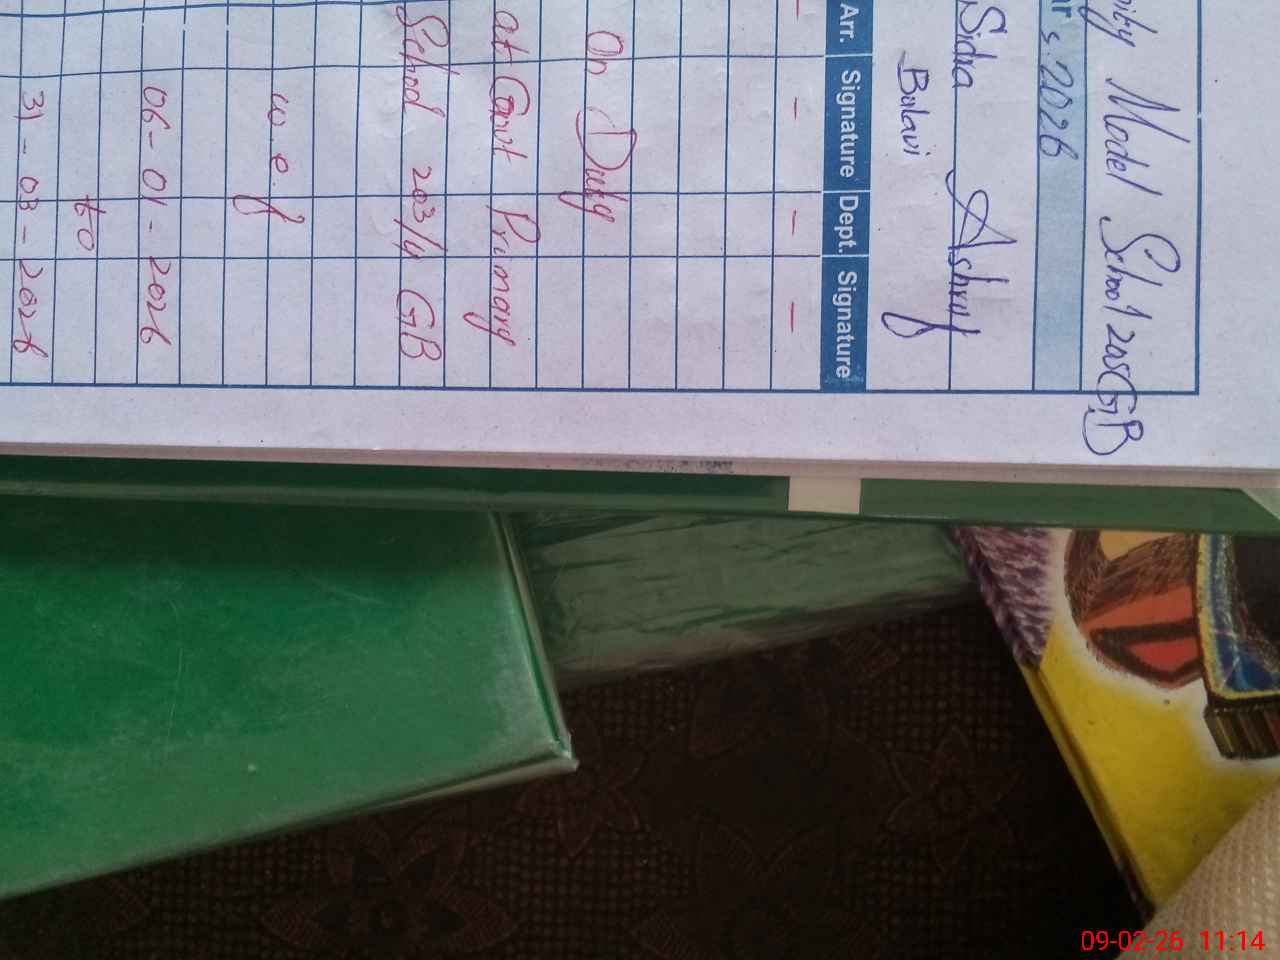 Model School 205 GB
2026
Sidra Ashraf
Arr. Signature Dept. Signature
- - - -
On Duty
at Govt Primary
School 203/4 GB
w.e.f
06-01-2026
to
31-03-2026
09-02-26 11:14